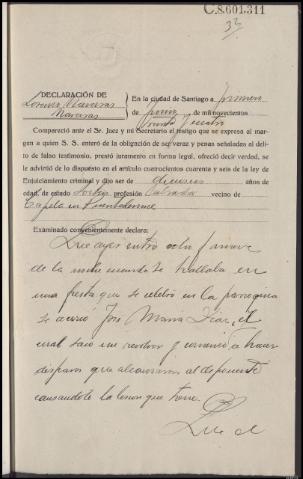 C.8.601.311
32
DECLARACIÓN DE
Lorenzo
En la ciudad de Santiago a primero
de junio de mil novecientos
Comparecio ante el Sr. Juez y mi Secretario el testigo que se expresa al margen
a quien S. S. enteró de la obligación de ser veraz y penas señaladas al delito
de falso testimonio, prestó juramento en forma legal, ofreció decir verdad, se
le advirtió de lo dispuesto en el artículo cuatrocientos cuarenta y seis de la ley de
Enjuiciamiento criminal y dijo ser de años de
edad, de estado profesión vecino de
Capela en
Examinado convenientemente declara:
Que ayer entre
de la noche cuando se hallaba en
una fiesta que se celebró en la parroquia
se acercó José Maria el
cual sacó un revolver y comenzó a hacer
disparos que alcanzaron al disponente
causandole la lesion que tiene
Que el